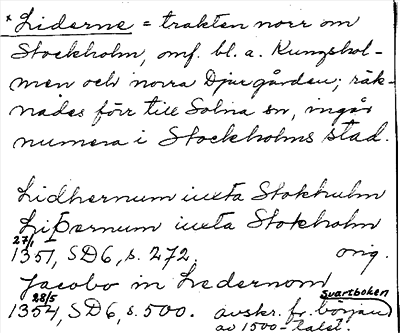 * Liderne = trakten norr om
Stockholm, omf. bl. a. Kungshol-
men och norra Djurgården; räk-
nades förr till Solna sn, ingår
numera i Stockholms stad.
Lidhernum iuxta Stokholm
Liþernum iuxta Stokholm
27/1
1351, SD6, s. 272. orig.
Jacobo in Ledernom
28/5 Svartboken
1354, SD6, s. 500. avskr. fr. början
av 1500-talet.